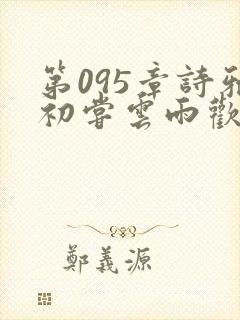 第095章詩雅
初嘗雲雨歡
鄭義源